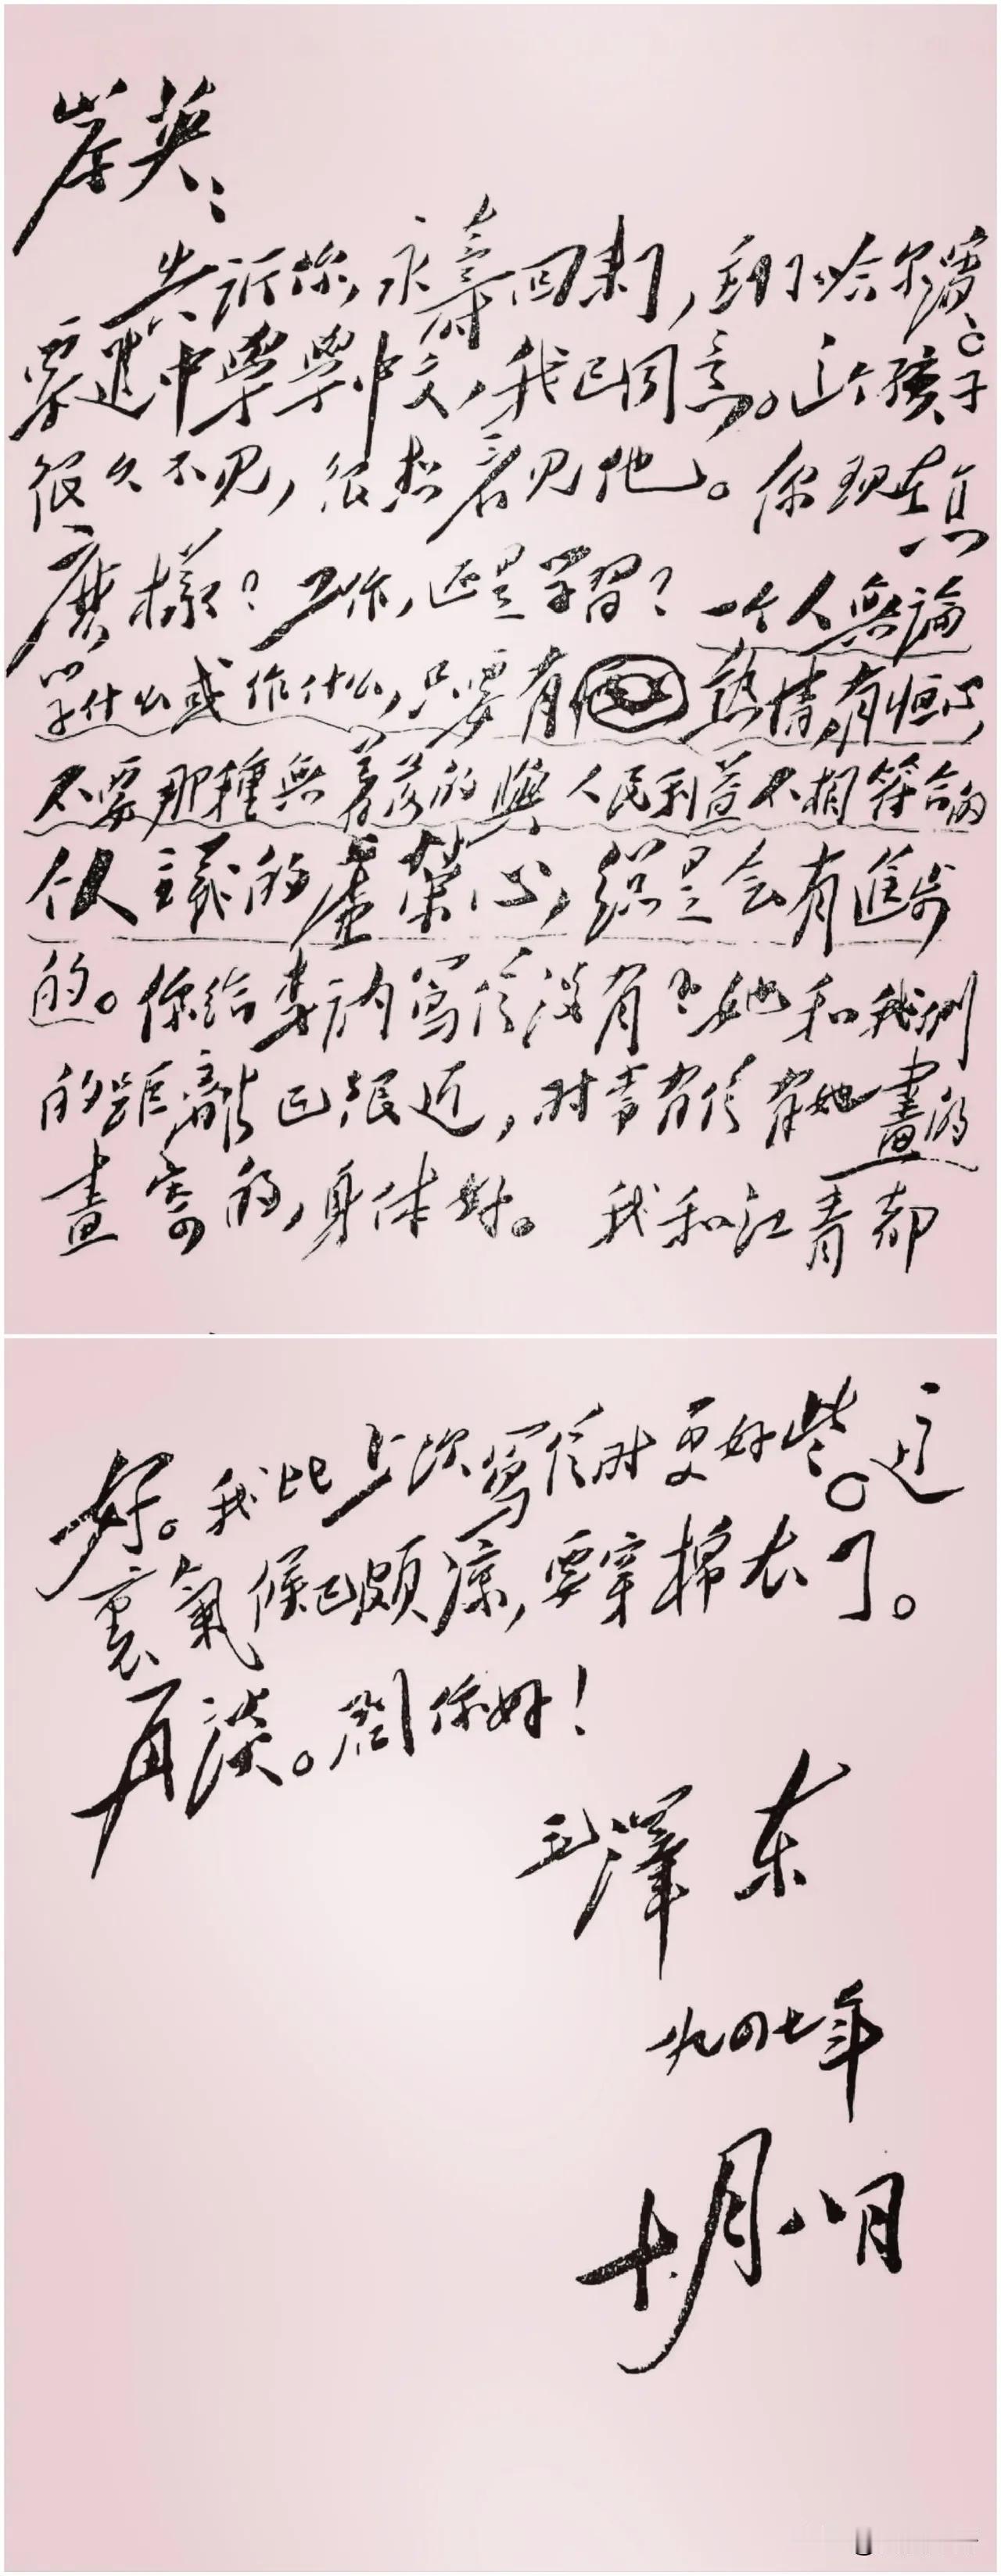 岸英：
告訴你，永壽回来了，到了哈尔濱。
要進中學學中文，我已同意。这个孩子
很久不见，很想看见他。你现在怎
麽樣？工作，还是学習？一个人無論
学什么或作什么，只要有热情，有恒心，
不要那種無着落的與人民利益不相符合的
个人主義的虚榮心，総是会有進步
的。你给李讷寫信没有？她和我们
的距離已很近，时常有信有她畫的
畫寄来，身体好。我和江青都
好。我比上次寫信时更好些。这
裏氣候已颇凉，要穿棉衣了。
再谈。問你好！
毛澤东
一九四七年
十月八日